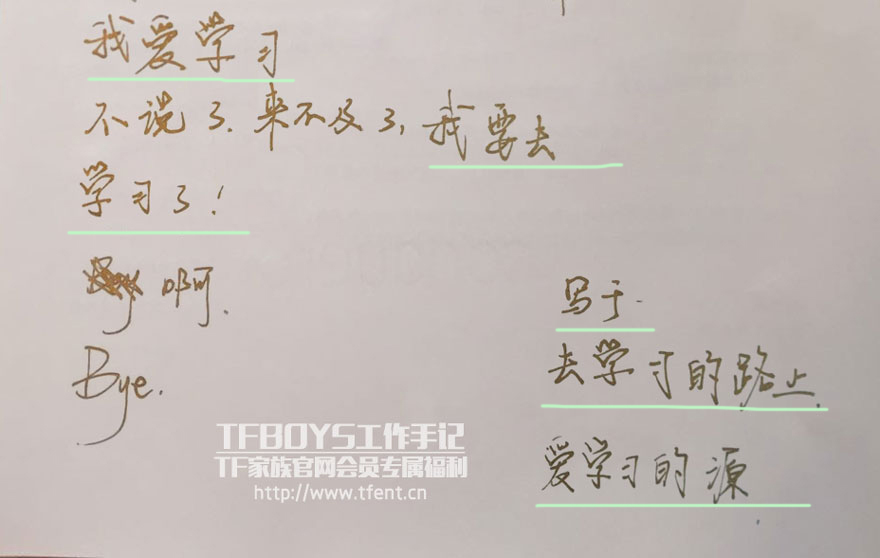 我爱学习
不说了.来不及了,我要去
学习了!
啊.
Bye.
写于.
去学习的路上.
爱学习的源
TFBOYS工作手记
TF家族官网会员专属福利
http://www.tfent.cn